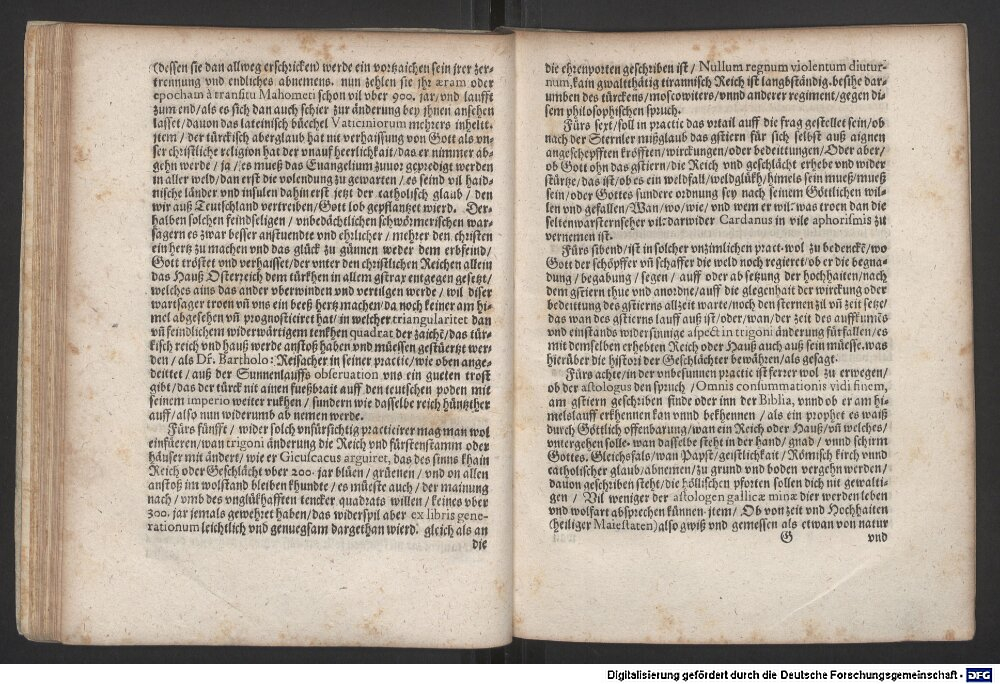 (dessen sie dan allweg erschricken) werde ein vortzaichen sein jrer zer-
trennung vnd endliches abnemens. nun zehlen sie jhr æram oder
epocham à transitu Mahometi schon vil vber 900. jar, vnd laufft
zum end/als es sich dan auch schier zur änderung bey ihnen ansehen
lasset/dauon das lateinisch büechel Vaticiniorum mehrers inhelt.
item / der türckisch aberglaub hat nit verhaissung von Gott als vn-
ser christliche religion hat der vnauf heerlichkait/das er nimmer ab-
gehn werde / ja / es mueß das Euangelium zuuor gepredigt werden
in aller weld/dan erst die volendung zu gewarten / es seind vil haid-
nische länder vnd insulen dahin erst jetzt der catholisch glaub / den
wir auß Teutschland vertreiben/Gott lob gepflantzet wierd. Der-
halben solchen feindseligen / vnbedächtlichen schwörmerischen war-
sagern es zwar besser anstuendte vnd ehrlicher / mehrer den christen
ein hertz zu machen vnd das glück zu günnen weder dem erbfeind/
Gott tröstet vnd verhaisset/der vnter den christlichen Reichen allein
das Hauß Osterreich dem türkhen in allem gstrax entgegen gesetzt/
welches ains das ander vberwinden vnd vertilgen werde / wil diser
wartsager troen vñ vns ein beeß hertz machen/da noch keiner am hi-
mel abgesehen vñ prognosticiret hat/in welcher triangularitet dan
vñ feindlichem widerwärtigem tenkhen quadrat der zaichē/das tür-
kisch reich vnd hauß werde anstoß haben vnd müessen gestüertzt wer-
den / als Df. Bartholo: Reisacher in seiner practic/wie oben ange-
deittet / auß der Sunnenlauffs observation vns ein gueten trost
gibt/das der türck nit ainen fueßbrait auff den teutschen poden mit
seinem imperio weiter rukhen / sundern wie dasselbe reich hüntzher
auff/also nun widerumb ab nemen werde.
Fürs fünfft / wider solch vnfürsichtig practicirer mag man wol
einfüeren/wan trigoni änderung die Reich vnd fürstenstamm oder
häuser mit ändert/wie er Gicuscacus arguiret, das des sinns khain
Reich oder Geschlächt vber 200. jar blüen/grüenen/vnd on allen
anstoß im wolstand bleiben khundte / es müeste auch / der mainung
nach / vmb des vnglükhafften tencker quadrats willen / keines vber
300. jar jemals gewehret haben/das widerspil aber ex libris gene-
rationum leichtlich vnd genuegsam dargethan wierd. gleich als an
die
die ehrenporten geschriben ist / Nullum regnum violentum diutur-
num, kain gwaltthätig tirannisch Reich ist langbständig. besihe dar-
umben des türckens/moscowiters/vnnd anderer regiment/gegen di-
sem philosophischen spruch.
Fürs sext/soll in practic das vrtail auff die frag gestellet sein/ob
nach der Sternler mißglaub das gstiern für sich selbst auß aignen
angeschepfften kröfften/wirckungen/oder bedeittungen/Oder aber/
ob Gott ohn das gstiern/die Reich vnd geschlächt erhebe vnd wider
stürtze/das ist/ob es ein weldsfall/weldglükh/himels sein mueß/mueß
sein/oder Gottes sundere ordnung sey nach seinem Göttlichen wil-
len vnd gefallen/Wan/wo/wie/vnd wem er wil. was troen dan die
seltenwarsternseher vil: darwider Cardanus in vile aphorismis zu
vernemen ist.
Fürs sibend/ist in solcher vnzimlichen pract. wol zu bedenckē/wo
Gott der schöpffer vñ schaffer die weld noch regieret/ob er die begna-
dung / begabung / segen / auff oder ab setzung der hochhaiten/nach
dem gstiern thue vnd anordne/auff die glegenhait der wirckung oder
bedeittung des gstierns allzeit warte/noch den sternen zil vñ zeit setze/
das was des gstierns lauff auß ist/oder/wan/der zeit des auffkumēs
vnd einstands widersinnige aspect in trigoni änderung fürfallen/es
mit demselben erhebten Reich oder Hauß auch auß sein müesse. was
hierüber die histori der Geschlächter bewähren/als gesagt.
Fürs achte/in der vnbesunnen practic ist ferrer wol zu erwegen/
ob der astologus den spruch / Omnis consummationis vidi finem,
am gstiern geschriben finde oder inn der Biblia, vnnd ob er am hi-
melslauff erkhennen kan vnnd bekhennen / als ein prophet es waiß
durch Göttlich offenbarung/wan ein Reich oder Hauß/vñ welches/
vntergehen solle. wan dasselbe steht in der hand / gnad / vnnd schirm
Gottes. Gleichsfals/wan Papst/geistlichkait / Römisch kirch vnnd
catholischer glaub/abnemen/zu grund vnd boden vergehn werden/
dauon geschriben steht/die höllischen pforten sollen dich nit gewalti-
gen / Vil weniger der astologen gallicæ minæ dier werden leben
vnd wolfart absprechen künnen. item/ Ob von zeit vnd Hochhaiten
(heiliger Maiestaten) also gwiß vnd gemessen als etwan von natur
G vnd
Digitalisierung gefördert durch die Deutsche Forschungsgemeinschaft - DFG